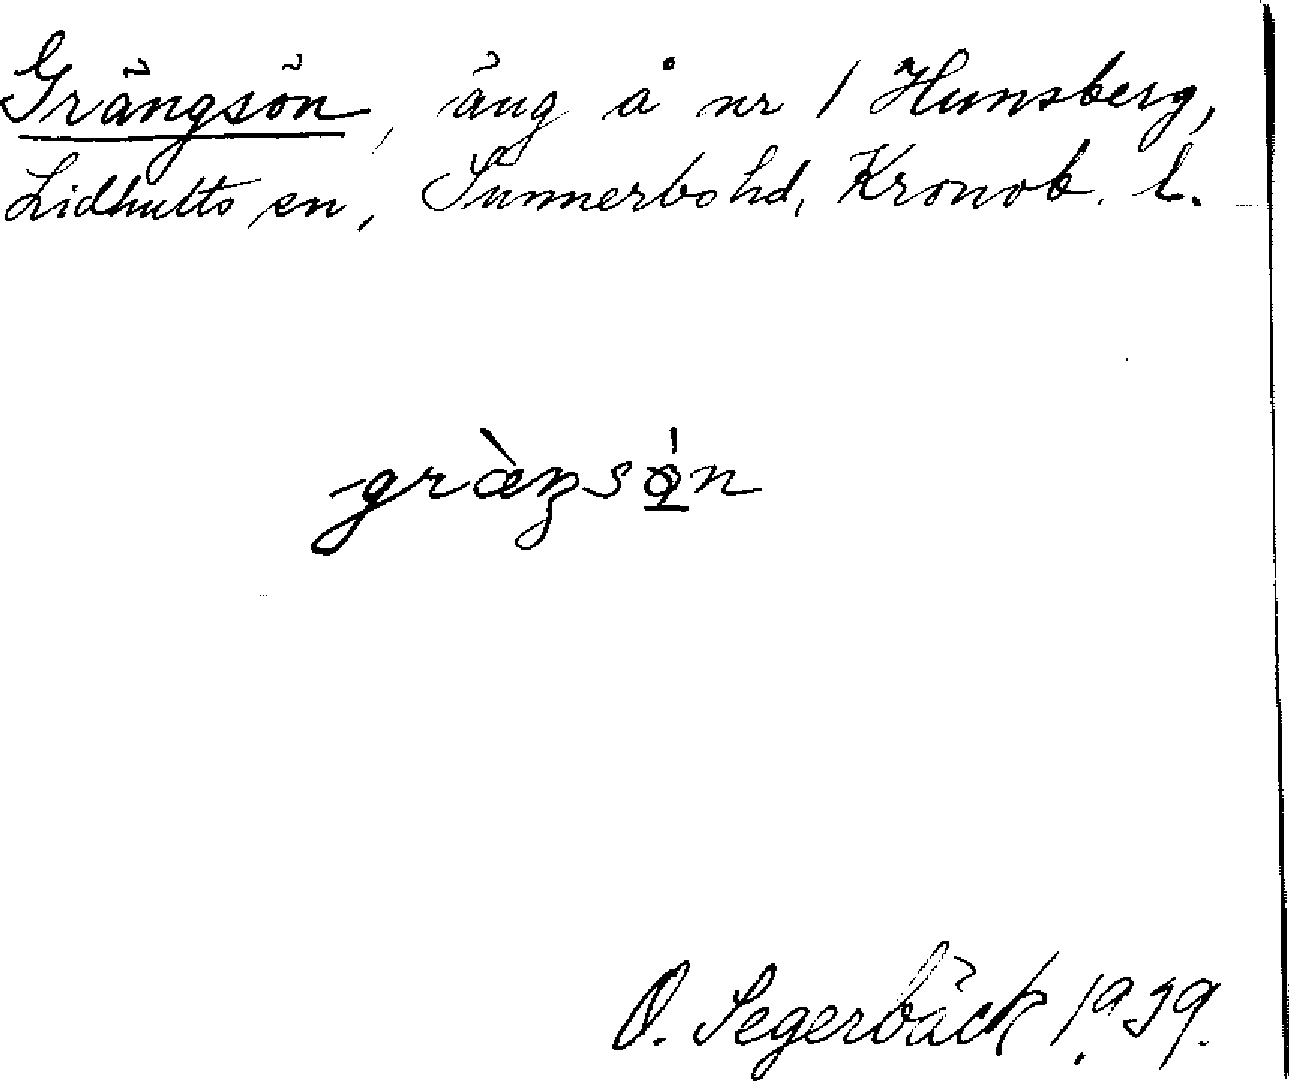 Grängsön, äng å nr 1 Hunsberg,
Lidhults sn, Sunnerbo hd, Kronob. l.
græ̀ŋsǿn
O. Segerbäck 1939.